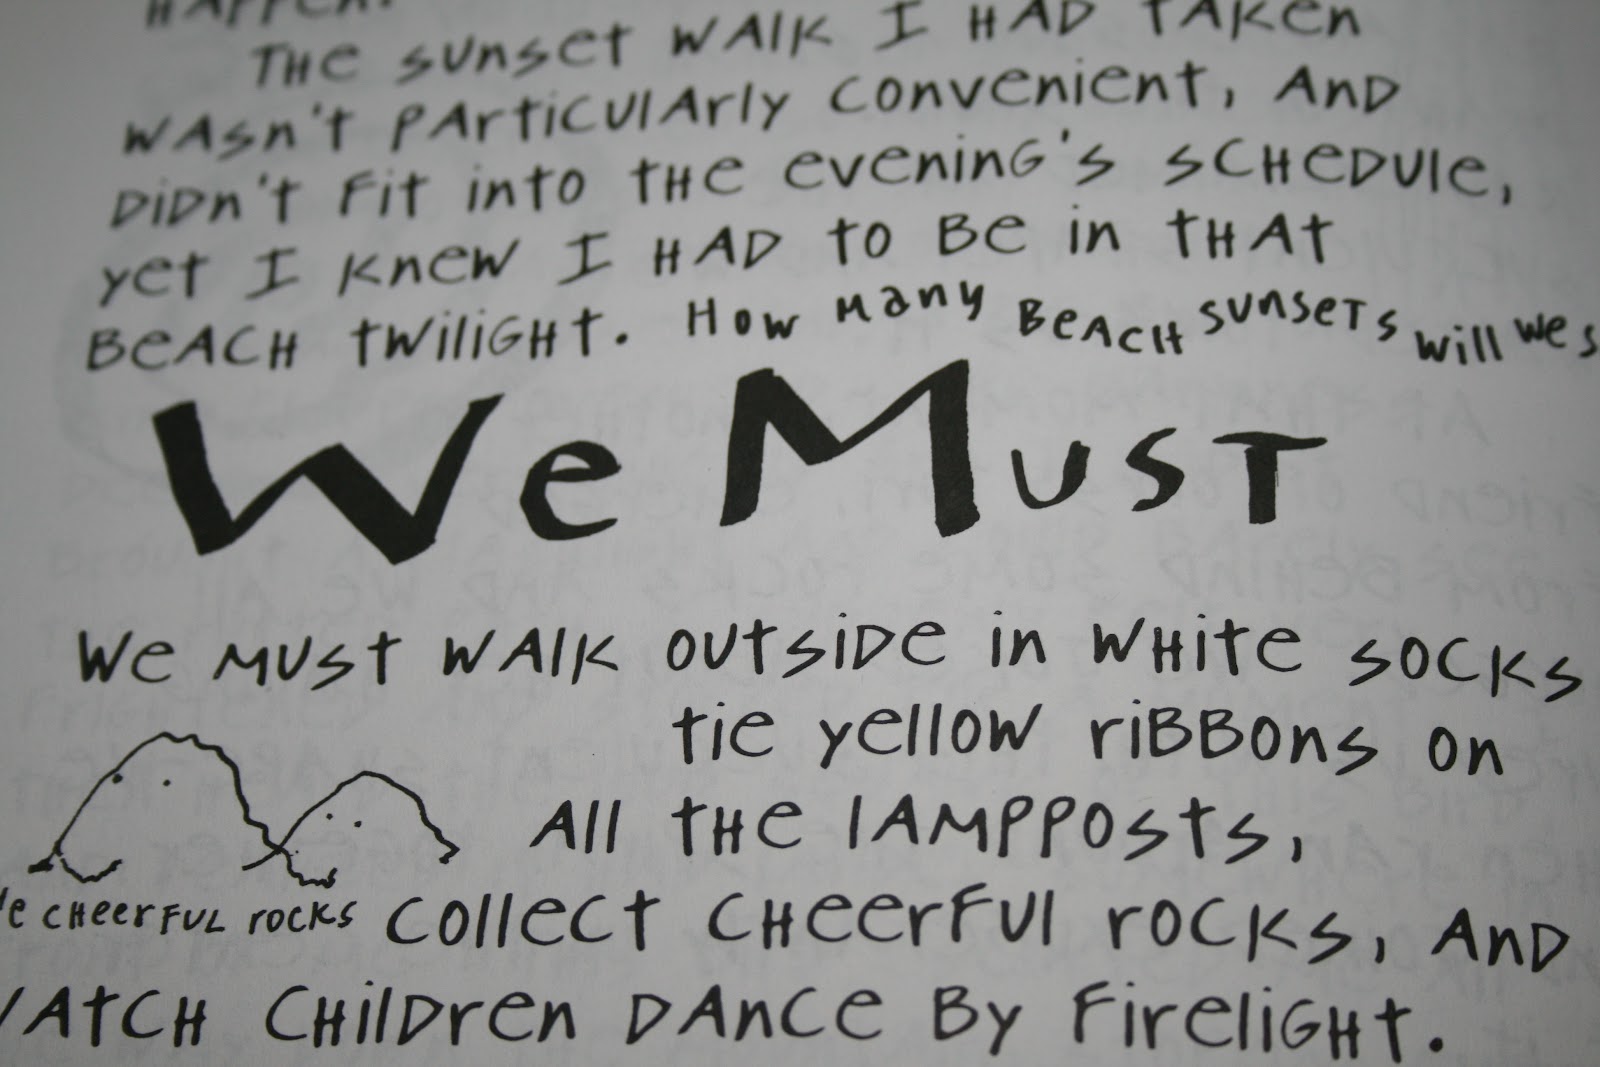 HAPPEN.
THE SUNSET WALK I HAD TAKEN
WASN'T PARTICULARLY CONVENIENT, AND
DIDN'T FIT INTO THE EVENING'S SCHEDULE,
YET I KNEW I HAD TO BE IN THAT
BEACH TWILIGHT. HOW MANY BEACH SUNSETS WILL WE S
WE MUST
WE MUST WALK OUTSIDE IN WHITE SOCKS
TIE YELLOW RIBBONS ON
ALL THE LAMPPOSTS,
CHEERFUL ROCKS COLLECT CHEERFUL ROCKS, AND
WATCH CHILDREN DANCE BY FIRELIGHT.